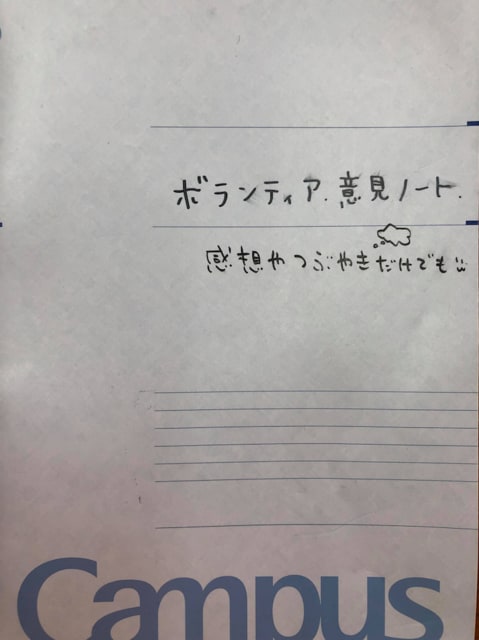 ボランティア.意見ノート.
感想やつぶやきだけでも
Campus